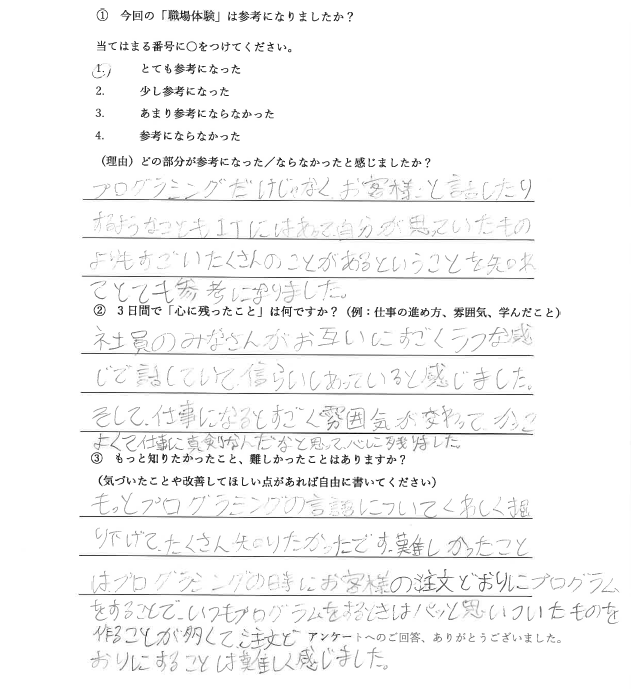 ① 今回の「職場体験」は参考になりましたか？
当てはまる番号に〇をつけてください。
1. とても参考になった
2. 少し参考になった
3. あまり参考にならなかった
4. 参考にならなかった
（理由）どの部分が参考になった／ならなかったと感じましたか？
プログラミングだけじゃなく、お客様と話したり
するようなこともITにはあって自分が思っていたもの
よりもすごいたくさんのことがあるということを知れ
てとても参考になりました。
② 3日間で「心に残ったこと」は何ですか？（例：仕事の進め方、雰囲気、学んだこと）
社員のみなさんがお互いにすごくラフな感
じで話していて、信らいしあっていると感じました。
そして、仕事になるとすごく雰囲気が変わって、かっこ
よくて仕事に真剣なんだなと思って、心に残りました。
③ もっと知りたかったこと、難しかったことはありますか？
（気づいたことや改善してほしい点があれば自由に書いてください）
もっとプログラミングの言語についてくわしく掘
り下げて、たくさん知りたかったです。難しかったこと
はプログラミングの時にお客様の注文どおりにプログラム
をすることで、いつもプログラムをするときはパッと思いついたものを
作ることが多くて、注文ど
アンケートへのご回答、ありがとうございました。
おりにすることは難しく感じました。